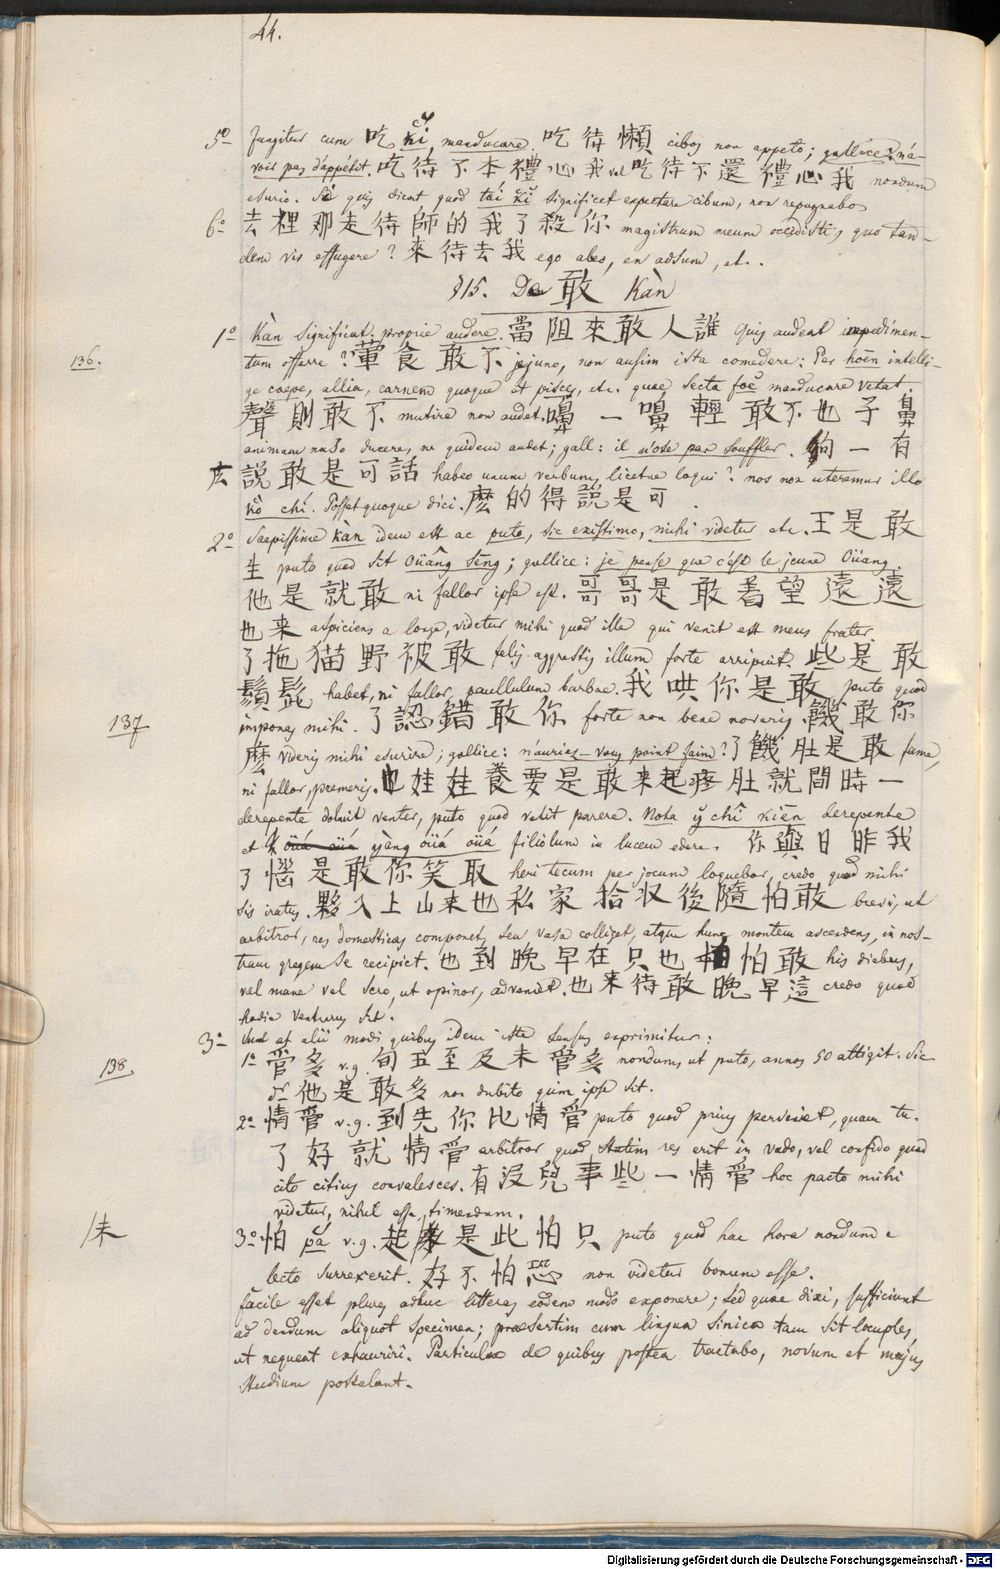 44.
5º Jungitur cum 吃 ki, manducare. 吃待懶 cibos non appeto; gallice: n'a-
vois pas d'appétit. 吃待不本禮心我 vel 吃待不還禮心我 nondum
esurio. Si quis dicat quod tái ki significet expectare cibum, non repugnabo
6º 去裡那走待師的我了殺你 magistrum meum occidisti, quo tan-
dem vis effugere? 來待去我 ego abeo, en adsum, etc.
§15. De 敢 Kàn
1º Kàn significat proprie audere. 當阻來敢人誰 Quis audeat impedimen-
136.
tum offerre? 葷食敢不 jejuno, non ausim ista comedere: Per hoēn intelli-
ge caepe, allia, carnem quoque et pisces, etc. quae secta foĕ manducare vetat.
聲則敢不 mutire non audet. 嚊一嚊輕敢不也子鼻
animam naso ducere, ne quidem audet; gall: il n'ose pas souffler. 句一有
説敢是可話 habeo unum verbum, licetne loqui? nos non uteremur illo
kŏ chí. Posset quoque dici. 麽的得説是可
2º Saepissime kàn idem est ac puto, sic existimo, mihi videtur etc. 王是敢
生 puto quod sit Oüâng Sēng; gallice: je pense que c'est le jeune Oüang.
他是就敢 ni fallor ipse est. 哥哥是敢着望遠遠
也来 aspiciens a longe, videtur mihi quod ille qui venit est meus frater.
了拖猫野被敢 felis agrestis illum forte arripuit. 些是敢
鬚髭 habet, ni fallor, paullulum barbae. 我哄你是敢 puto quod
137
imponas mihi. 了認錯敢你 forte non bene noveris. 饑敢你
麽 videris mihi esurire; gallice: n'auriez-vous point faim? 了饑肚是敢 fame,
ni fallor, premeris. 也娃娃養要是敢来起疼肚就間時一
derepente doluit venter, puto quod velit parere. Nota ў chî kiēn derepente
et yàng oüá oüá filiolum in lucem edere. 你與日昨我
了惱是敢你笑取 heri tecum per jocum loquebar, credo quod mihi
sis iratus. 夥入上山来也私家拾収後隨怕敢 brevi, ut
arbitror, res domesticas componet, seu vasa colliget, atque hunc montem ascendens, in nos-
trum gregem se recipiet. 也到晚早在只也怕敢 his diebus,
vel mane vel sero, ut opinor, adveniet. 也来待敢晚早這 credo quod
hodie venturus sit.
3º Sunt et alii modi quibus idem iste sensus exprimitur:
138.
1º 管多 v.g. 旬五至及未管多 nondum, ut puto, annos 50 attigit. Sic-
他是敢多 non dubito quin ipse sit.
2º 情管 v.g. 到先你比情管 puto quod prius perveniet, quam tu.
了好就情管 arbitror quod statim res erit in vado, vel confido quod
cito citius convalesces. 有没兒事些一情管 hoc pacto mihi
videtur, nihil esse timendum.
/未
3º 怕 pá v.g. 起是此怕只 puto quod hac hora nondum e
lecto surrexerit. 好不怕恐 non videtur bonum esse.
facile esset plures adhuc litteras eodem modo exponere; sed quae dixi, sufficiunt
ad dandum aliquot specimen; praesertim cum lingua sinica tam sit locuples,
ut nequeat exhauriri. Particulae de quibus postea tractabo, novum et majus
studium postulant.
Digitalisierung gefördert durch die Deutsche Forschungsgemeinschaft - DFG